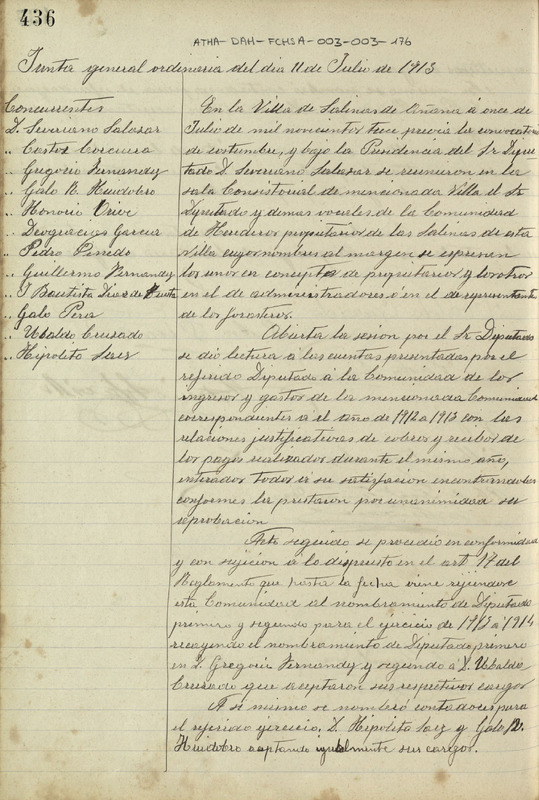 436
ATHA-DAH-FCHSA-003-003-176
Junta general ordinaria del dia 11 de Julio de 1913
Concurrentes
D. Severiano Salazar
" Castor Corcuera
" Gregorio Fernandz
" Galo R. Huidobro
" Honorio Orive
" Deogracias Garcia
" Pedro Pinedo
" Guillermo Fernandz
" J Bautista Diaz de
" Galo Pera
" Ubaldo Crusado
" Hipolito Saez
En la Villa de Salinas de Añana á once de
Julio de mil novecientos trece previa la convocatoria
de costumbre, y bajo la Presidencia del Sr Dipu-
tado D. Severiano Salazar se reunieron en la
sala Consistorial de mencionada Villa el Sr
Diputado y demas vocales de la Comunidad
de Herederos propietarios de las Salinas de esta
Villa cuyos nombres al margen se expresan
los unos en concepto de propietarios y los otros
en el de administradores ó en el de representantes
de los forasteros.
Abierta la sesion por el Sr Diputado
se dio lectura á las cuentas presentadas por el
referido Diputado á la Comunidad de los
ingresos y gastos de la mencionada Comunidad
correspondientes á el año de 1912 a 1913 con las
relaciones justificativas de cobros y recibos de
los pagos realizados durante el mismo año,
enterados todos á su satisfacion encontrandolas
conformes las prestaron por unanimidad su
aprobacion
Acto seguido se procedió en conformidad
y con sujicion a lo dispuesto en el art 17 del
Reglamento que hasta la fecha viene rijiendose
esta Comunidad al nombramiento de Diputado
primero y segundo para el ejercicio de 1913 a 1914
recayendo el nombramiento de Diputado primero
en D. Gregorio Fernandz y segundo á D. Ubaldo
Crusado que aceptaron sus respectivos cargos
A si mismo se nombró contadores para
el referido ejercicio, D. Hipolito Saez y Galo R.
Huidobro aceptando igualmente sus cargos.